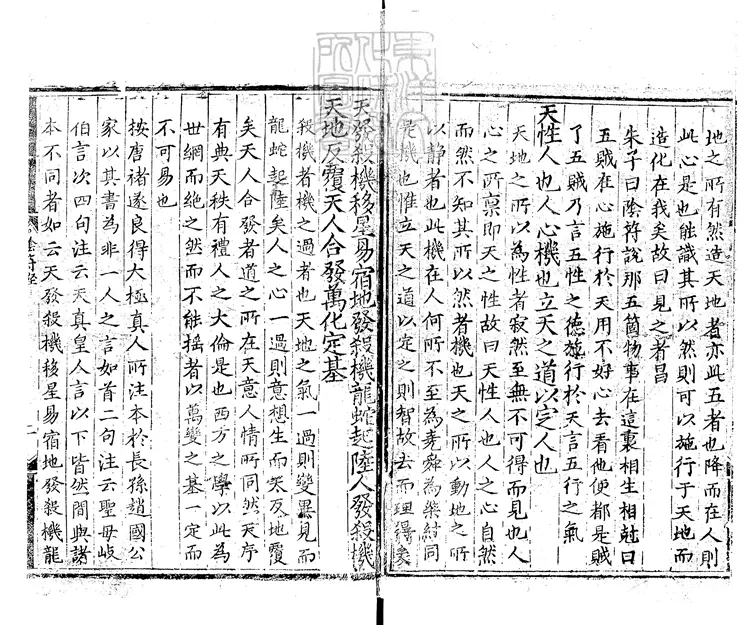 地之所有然造天地者亦此五者也降而在人則
此心是也能識其所以然則可以施行于天地而
造化在我矣故曰見之者昌
朱子曰陰符說那五箇物事在這裏相生相尅曰
五賊在心施行於天用不好心去看他便都是賊
了五賊乃言五性之德施行於天言五行之氣
天性人也人心機也立天之道以定人也
天地之所以為性者寂然至無不可得而見也人
心之所稟即天之性故曰天性人也人之心自然
而然不知其所以然者機也天之所以動地之所
以靜者也此機在人何所不至為堯舜為桀紂同
是機也惟立天之道以定之則智故去而理得矣
天發殺機移星易宿地發殺機龍蛇起陸人發殺機
天地反覆天人合發萬化定基
殺機者機之過者也天地之氣一過則變異見而
龍蛇起陸矣人之心一過則意想生而天反地覆
矣天人合發者道之所在天意人情所同然天序
有典天秩有禮人之大倫是也西方之學以此為
世綱而絕之然而不能搖者以萬變之基一定而
不可易也
按唐褚遂良得太極真人所注本於長孫趙國公
家以其書為非一人之言如首二句注云聖母岐
伯言次四句注云天真皇人言以下皆然間與諸
本不同者如云天發殺機移星易宿地發殺機龍
陰符經